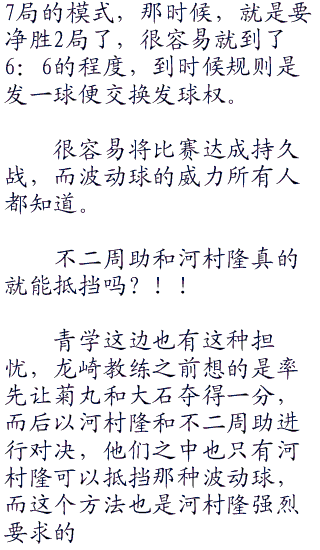 7局的模式，那时候，就是要
净胜2局了，很容易就到了
6：6的程度，到时候规则是
发一球便交换发球权。
很容易将比赛达成持久
战，而波动球的威力所有人
都知道。
不二周助和河村隆真的
就能抵挡吗？！！
青学这边也有这种担
忧，龙崎教练之前想的是率
先让菊丸和大石夺得一分，
而后以河村隆和不二周助进
行对决，他们之中也只有河
村隆可以抵挡那种波动球，
而这个方法也是河村隆强烈
要求的